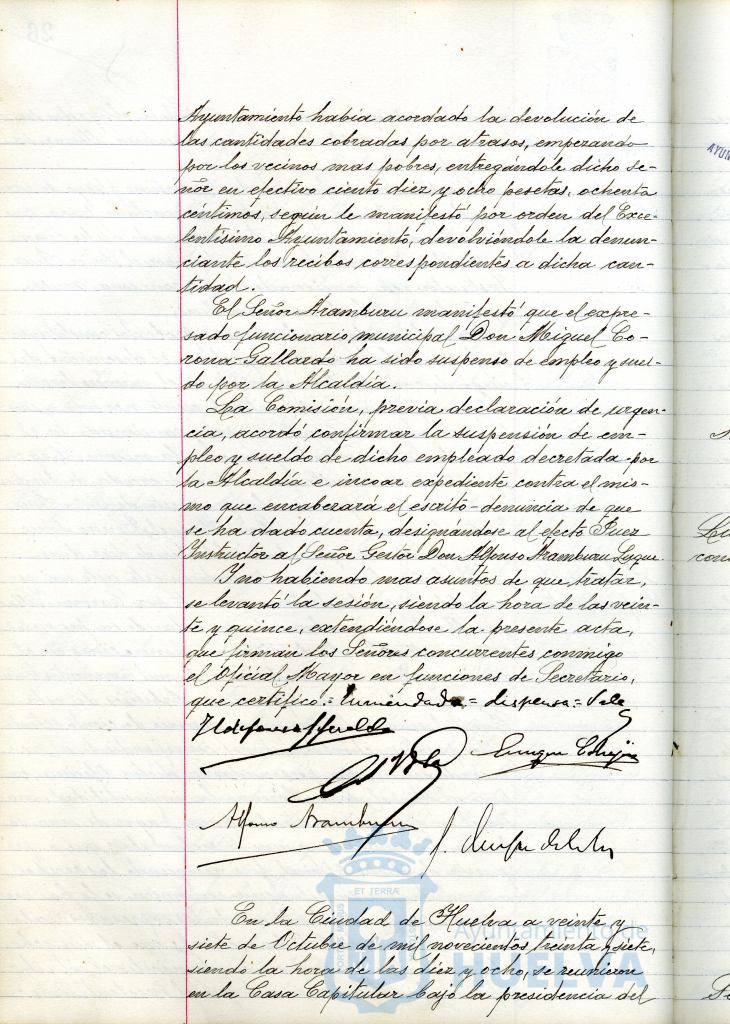 Ayuntamiento había acordado la devolución de
las cantidades cobradas por atrasos, empezando
por los vecinos mas pobres, entregándole dicho se-
ñor en efectivo ciento diez y ocho pesetas, ochenta
céntimos, según le manifestó por orden del Exce-
lentísimo Ayuntamiento, devolviéndole la denun-
ciante los recibos correspondientes a dicha can-
tidad.
El Señor Aramburu manifestó que el expre-
sado funcionario municipal Don Miguel Co-
rona Gallardo ha sido suspenso de empleo y suel-
do por la Alcaldía.
La Comisión, previa declaración de urgen-
cia, acordó confirmar la suspensión de em-
pleo y sueldo de dicho empleado decretada por
la Alcaldía e incoar expediente contra el mis-
mo que encabezará el escrito-denuncia de que
se ha dado cuenta, designándose al efecto Juez
Instructor al Señor Gestor Don Alfonso Aramburu
Y no habiendo mas asuntos de que tratar,
se levantó la sesión, siendo la hora de las vein-
te y quince, extendiéndose la presente acta,
que firman los Señores concurrentes conmigo
el Oficial Mayor en funciones de Secretario,
que certifico.= Enmendado = dispensa = Vale
Enrique
Alfonso Aramburu
ET TERRÆ
En la Ciudad de Huelva a veinte y
siete de Octubre de mil novecientos treinta y siete,
siendo la hora de las diez y ocho, se reunieron
en la Casa Capitular bajo la presidencia del
Ayuntamiento de
HUELVA